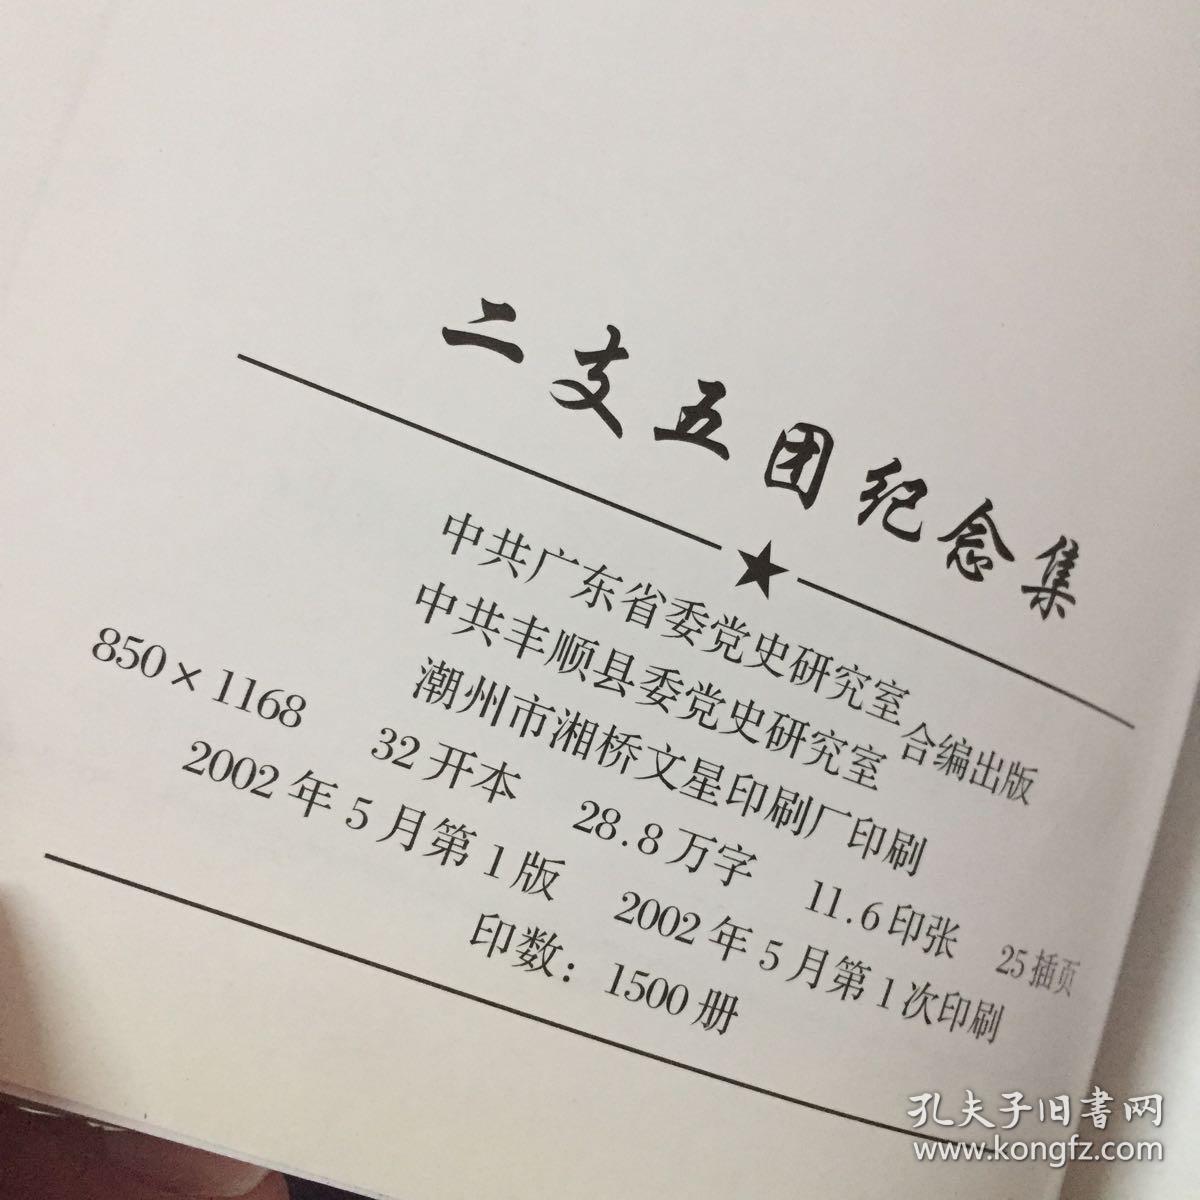 二支五团纪念集
★
中共广东省委党史研究室
中共丰顺县委党史研究室
合编出版
潮州市湘桥文星印刷厂印刷
850×1168 32开本 28.8万字 11.6印张 25插页
2002年5月第1版 2002年5月第1次印刷
印数：1500册
孔夫子旧书网
www.kongfz.com